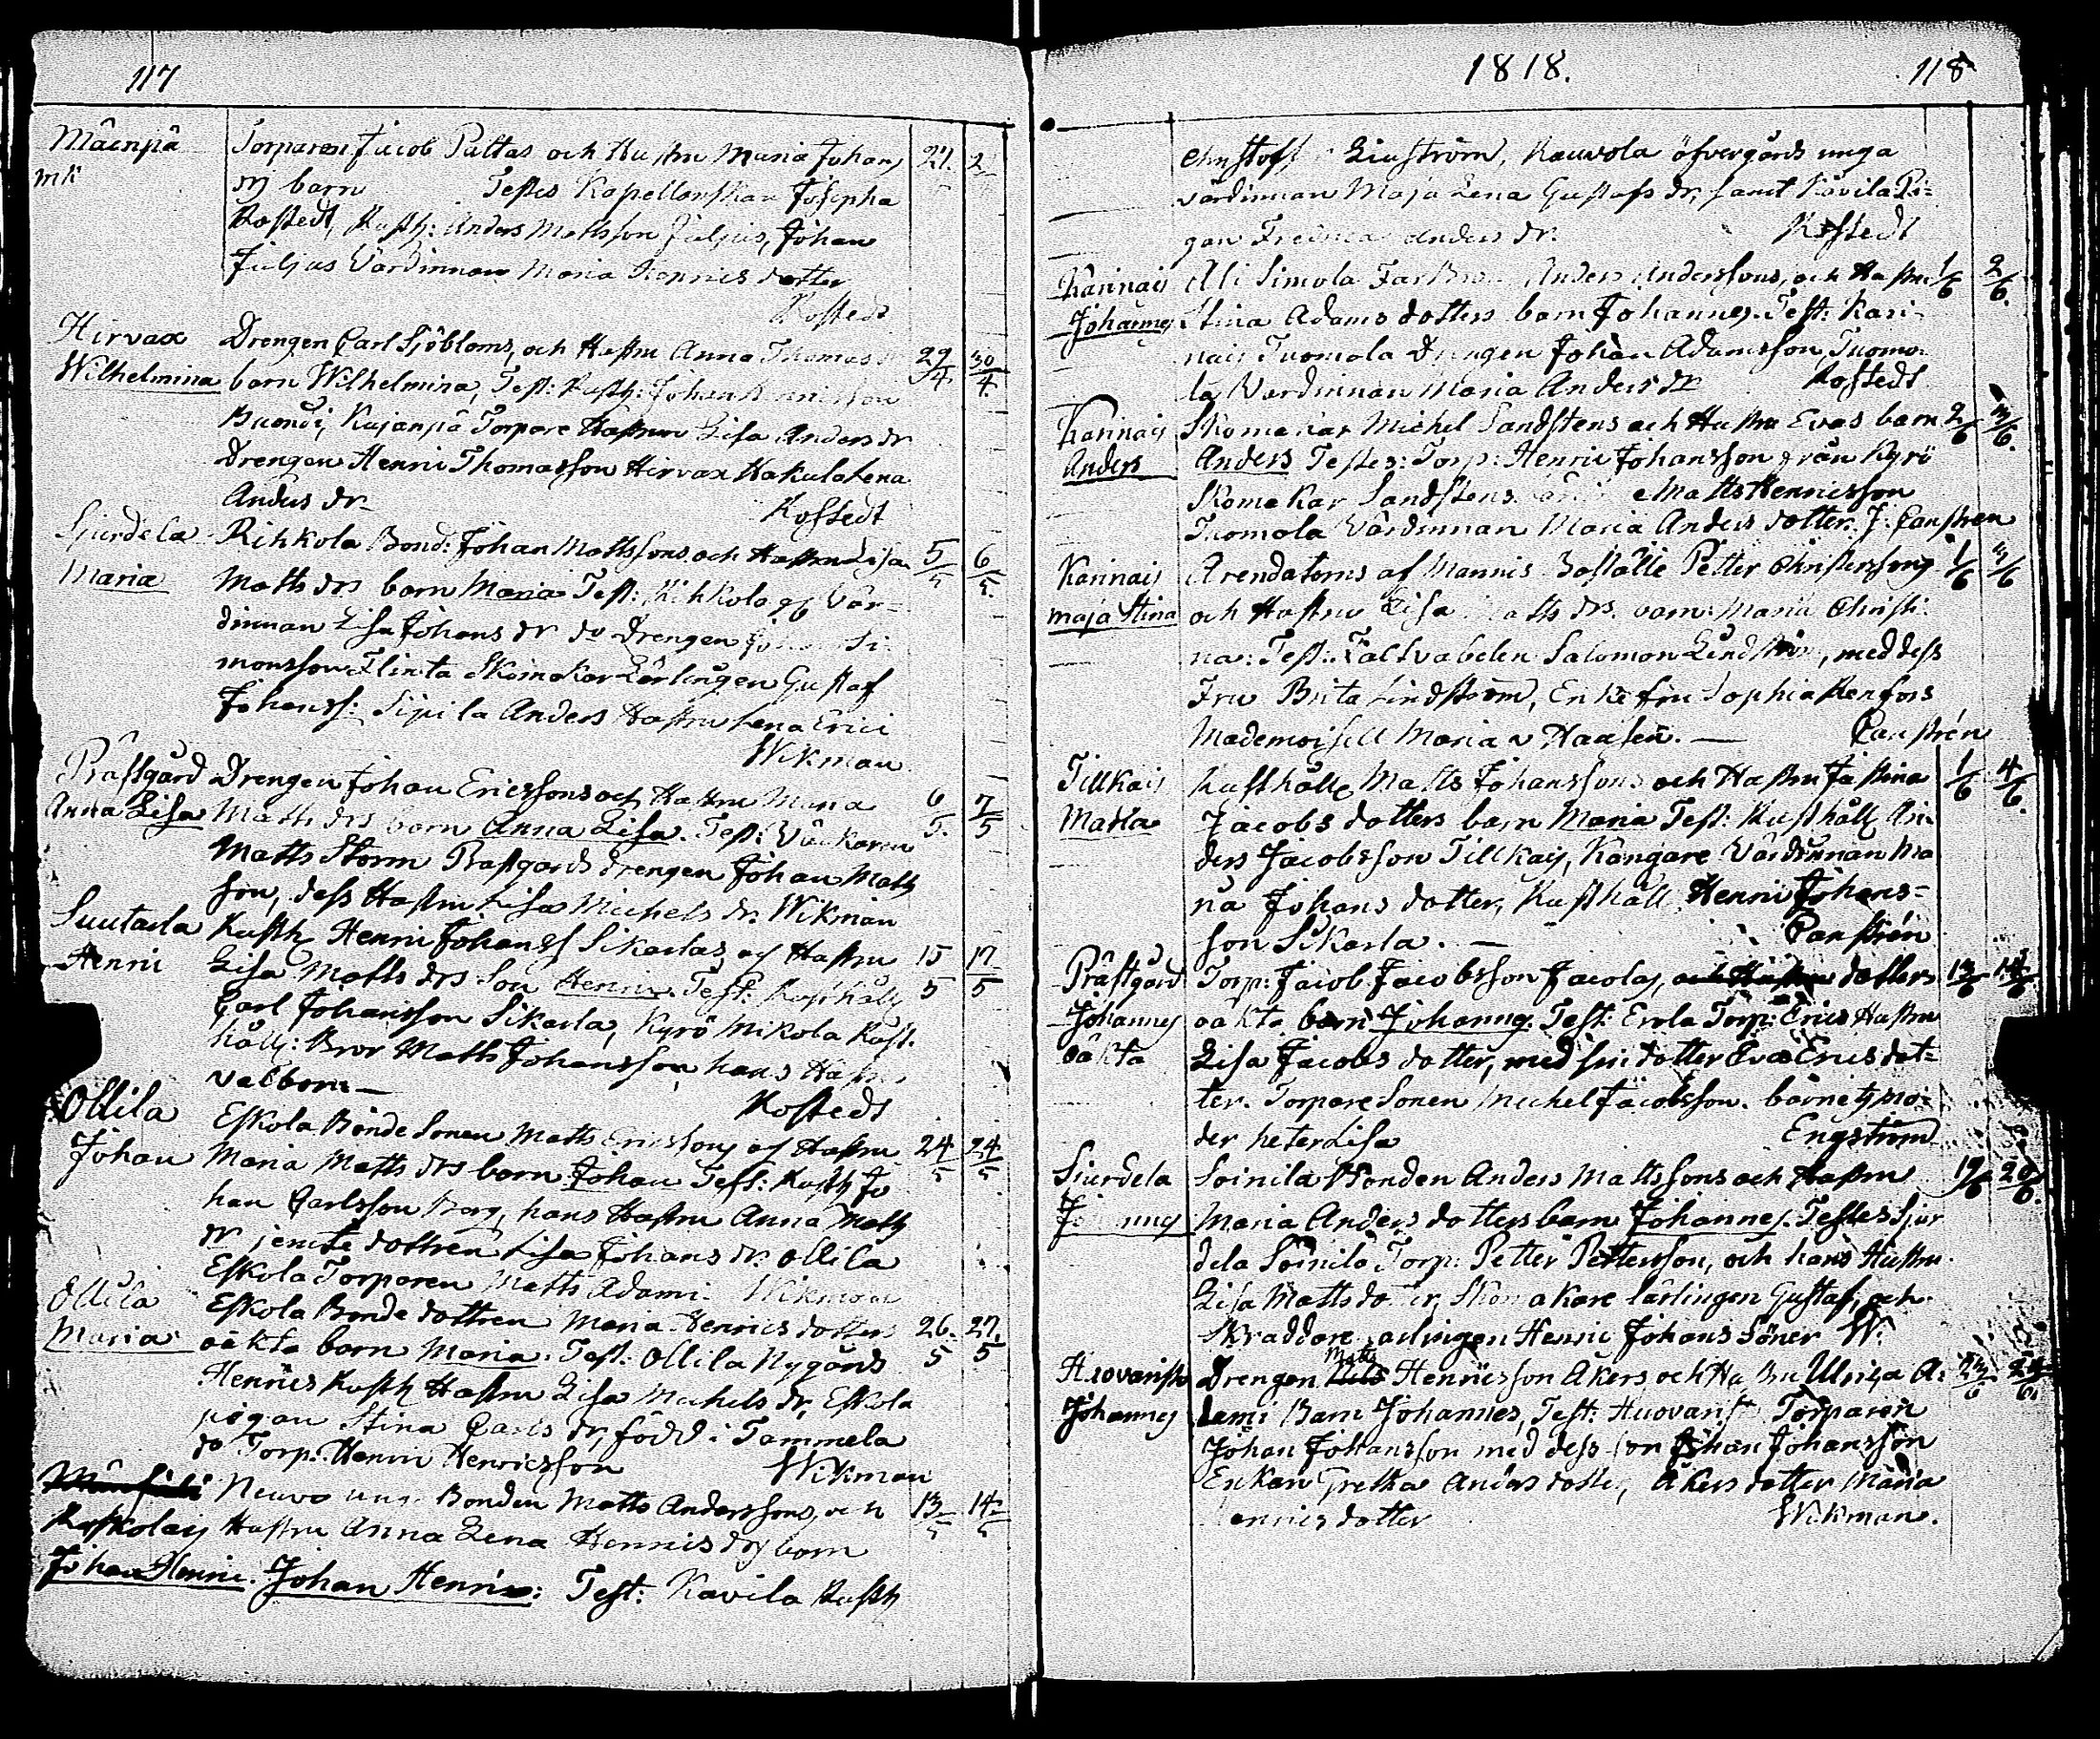 117
Mäenpä Torparen Jacob Pattas och Hustru Maria Johans 27. 2
mk drs barn Testes Kapellanskan Josepha
Kostedt, Rusth: Anders Mattsson Juljus, Johan
Juljus Värdinnan Maria Henrics dotter
Kostedt
Hirvax Drengen Carl Sjöbloms, och Hustru Anna Thomas 29/4. 30/4.
Wilhelmina barn Wilhelmina, Test: Rusth: Johan
Kujanpä Torpare Hustrun Lisa Anders dr
Drengen Henric Thomasson Hirvax Hakula Lena
Anders dr Kostedt
Sjurdela Rihkola Bond: Johan Mattssons och Hustru Lisa 5/5 6/5.
Maria Matts drs barn Maria Test: Rihkola Vär-
dinnan Lisa Johans dr do Drengen Si-
monsson Flinta Skomakar Lärlingen Gustaf
Johanss: Sipila Anders Hustru Lena Erici
Wikman
Prästgård Drengen Johan Ericssons och Hustru Maria 6/5. 7/5
Anna Lisa Matts drs barn Anna Lisa. Test: Våckaren
Matts Storm Prästgårds drengen Johan Matts
son, dess Hustru Lisa Michels dr. Wikman
Suutarla Rusth Henric Johanss Sikarlas och Hustru 15/5 17/5
Henric Lisa Matts drs Son Henric. Test: Rusthåll
Carl Johansson Sikarla, Kyrö Mikola Rust-
håll: Bror Matts Johansson hans Hustru
Valborn—
Kostedt
Ollila Eskola Bonde Sonen Matts Ericssons och Hustru 24/5 24/5
Johan Maria Matts drs barn Johan Test: Rusth Jo
han Carlsson Borg, hans Hustru Anna Matts
dr jemte dottren Lisa Johans dr. Ollila
Eskola Torparen Matts Adami. Wikman
Ollila Eskola Bonde dottren Maria Henrics dotter 26./5 27./5
Maria oäkta barn Maria. Test: Ollila Nygårds
Henrics Rusth Hustru Lisa Michels dr, Eskola
pigan Stina Carls dr, född i Tammela
do Torp: Henric Henricsson Wikman
Neuvo Bonden Matts Anderssons, och 13/5 14/5
Huskolais Hustru Anna Lena Henricsdrs barn
Johan Henric. Johan Henric: Test: Kavila Rusth
1818. 118
Liuström, Kauvola öfvergårds unga
värdinnan Maja Lena Gustafs dr, samt Kavila Pi-
gan Fredrica Anders dr. Kostedt
Karinais Ali Simola Anders Anderssons, och Hustru 1/6 2/6.
Johannes Stina Adams dotters barn Johannes. Test: Kari-
nais Tuomola Drengen Johan Adamsson, Tuomo-
la Värdinnan Maria Anders dr Kostedt
Karinais Skomakar Michel Sandstens och Hustru Evas barn 2/6 3/6.
Anders Anders Testes: Torp: Henric Johansson från Kyrö
Skomakar Sandstens Matts Henricsson
Tuomola Värdinnan Maria Anders dotter. J. Canstren
Karinais Arendatorns af Mannis Boställe Petter Christerssons 1/6 4/6
Maja Stina och Hustru Lisa Matts drs. barn: Maria Christi-
na: Test: Fältväbelen Salomon Lindström, med dess
Fru Brita Lindström, Enkefru Sophia Renfors
Mademoisell Maria v Haasen.— Canstrén
Tillkais Rusthålle Matts Johanssons och Hustru Justina 1/6 4/6.
Maria Jacobs dotters barn Maria Test: Rusthåll An-
ders Jacobsson Tillkais, Kangare Värdinnan Ma
ria Johans dotter, Rusthåll Henric Johans-
son Sikarla.— Canstrén
Prästgård Torp: Jacob Jacobsson Jacolas, och Hustru dotters 13/6 14/6
Johannes oäkta barn Johannes. Test: Erola Torp: Erics Hustru
oäkta Lisa Jacobs dotter, med sin dotter Eva Erics dot-
ter. Torpare Sonen Michel Jacobsson. barnets mo-
der heter Lisa Engström
Siurdela Soinila Bonden Anders Mattssons och Hustru 19/6 20/6.
Johannes Maria Anders dotters barn Johannes. Testes Sjur
dela Soinila Torp: Petter Pettersson, och hans Hustru
Lisa Matts dotter, Skomakare lärlingen Gustaf, och
Skräddare lärlingen Henric Johans Söner W.
Huovarista Drengen Matts Henricsson Åkers och Hustru Ulrica A- 23/6 24/6.
Johannes dami Barn Johannes, Test: Huovarista Torparen
Johan Johansson med dess son Johan Johansson
Enkan Gretha Anders dotter, Åkers dotter Maria
Henrics dotter Wikman.